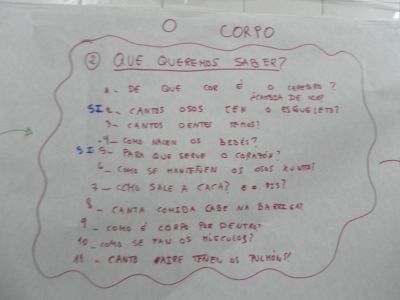 O CORPO
2 QUE QUEREMOS SABER?
1- DE QUE COR É O CEREBRO?
¿CAMBIA DE COR?
SI 2- CANTOS OSOS TEN O ESQUELETO?
3- CANTOS DENTES TEMOS?
4- COMO NACEN OS BEBÉS?
SI 5- PARA QUE SERVE O CORAZÓN?
6- COMO SE MANTEÑEN OS OSOS XUNTOS?
7- COMO SALE A CACA? E O PIS?
8- CANTA COMIDA CABE NA BARRIGA?
9- COMO É CORPO POR DENTRO?
10- COMO SE FAN OS MÚSCULOS?
11- CANTO AIRE TEÑEN OS PULMÓNS?